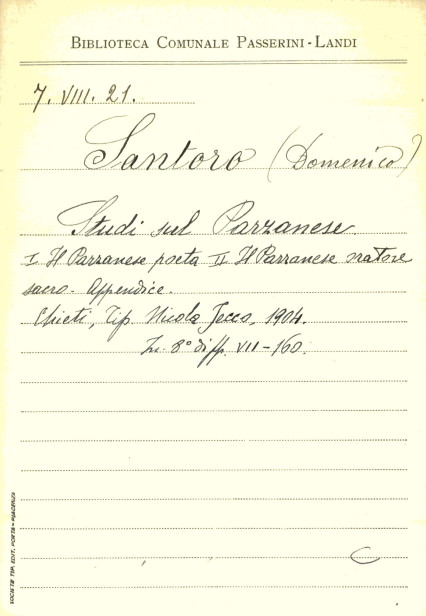 BIBLIOTECA COMUNALE PASSERINI-LANDI
7. VIII. 21.
Santoro (Domenico)
Studi sul Parzanese.
I Il Parzanese poeta II Il Parzanese oratore
sacro. Appendice.
Chieti, Tip. Nicola Jecco, 1904.
In 8° di pp. VII-160.
SOCIETÀ TIP. EDIT. PORTA-PIACENZA
C